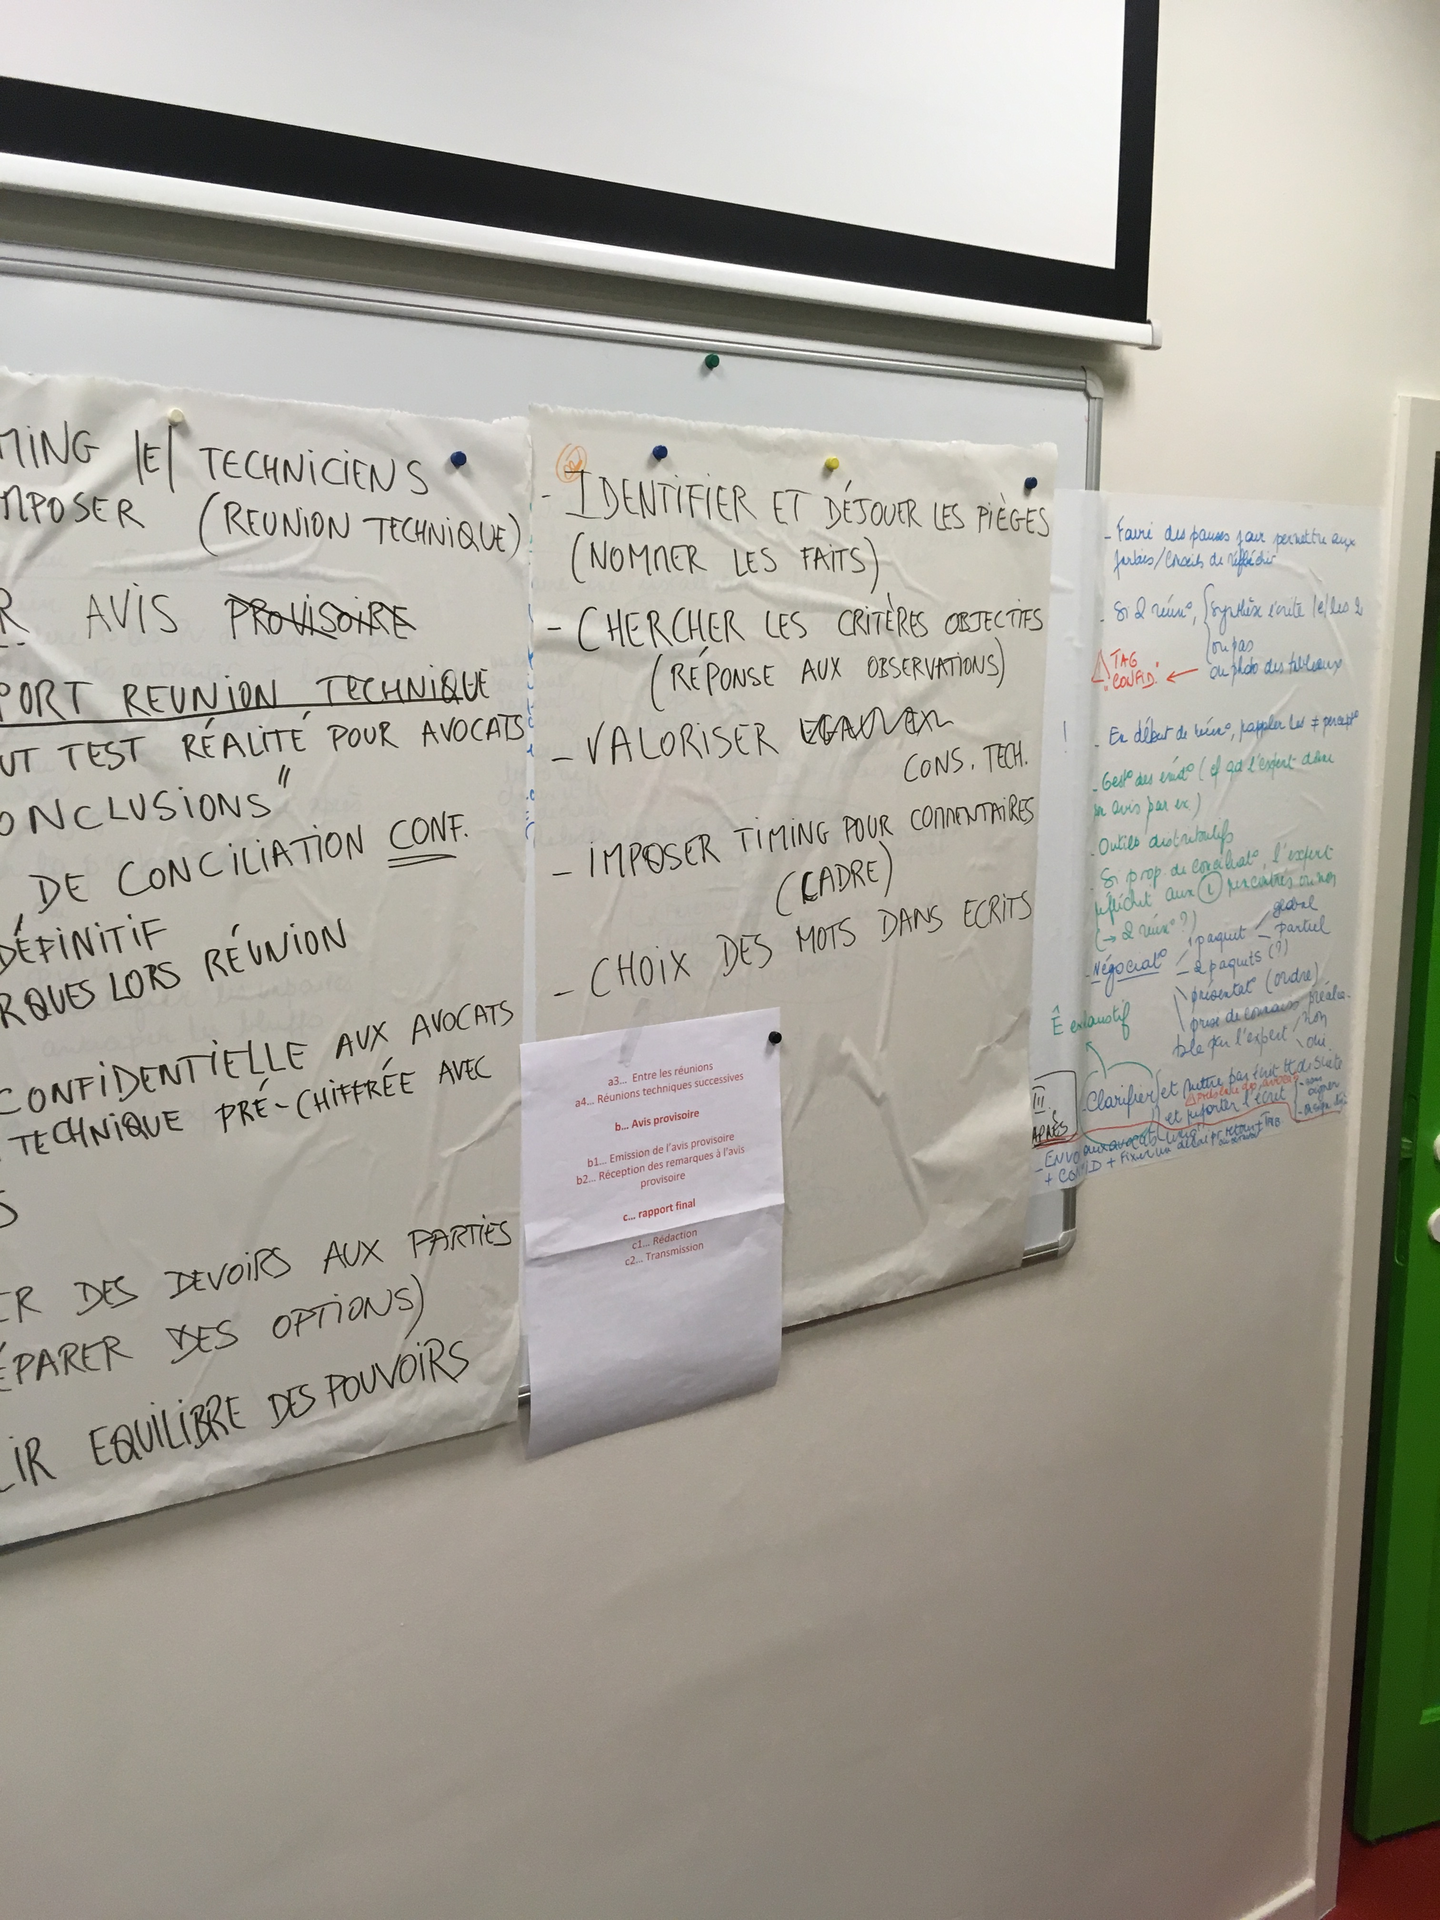 MING |E| TECHNICIENS
MPOSER (REUNION TECHNIQUE)
R AVIS PROVISOIRE
PORT REUNION TECHNIQUE
UT TEST RÉALITÉ POUR AVOCATS
ONCLUSIONS"
DE CONCILIATION CONF.
DÉFINITIF
RQUES LORS RÉUNION
CONFIDENTIELLE AUX AVOCATS
TECHNIQUE PRÉ-CHIFFRÉE AVEC
S
ER DES DEVOIRS AUX PARTIES
ÉPARER DES OPTIONS)
LIR EQUILIBRE DES POUVOIRS
- IDENTIFIER ET DÉJOUER LES PIÈGES
(NOMMER LES FAITS)
- CHERCHER LES CRITÈRES OBJECTIFS
(RÉPONSE AUX OBSERVATIONS)
- VALORISER
CONS. TECH.
- IMPOSER TIMING POUR COMMENTAIRES
(CADRE)
- CHOIX DES MOTS DANS ECRITS
a3... Entre les réunions
a4... Réunions techniques successives
b... Avis provisoire
b1... Emission de l'avis provisoire
b2... Réception des remarques à l'avis
provisoire
c... rapport final
c1... Rédaction
c2... Transmission
- Faire des pauses pour permettre aux
parties/Conseils de réfléchir
- Si 2 réun°, synthèse écrite |e| les 2
ou pas
ou photo des tableaux
TAG
CONFID.
!
- En début de réun°, rappeler les ≠ percept°
- Gest° des émot° (cf qd l'expert donne
son avis par ex.)
- Outils distributifs
- Si prop. de conciliat°, l'expert
réfléchit aux rencontres ou non
(→ 2 réun° ?)
- Négociat° 1 paquet global
partiel
2 paquets (?)
présentat° (ordre)
prise de connaiss. préala-
ble par l'expert non
oui
Ê exhaustif
III
APRÈS
- Clarifier et mettre par écrit tt de suite
et reporter l'écrit
- ENVOI aux avocats
+ CONFID + Fixer un délai